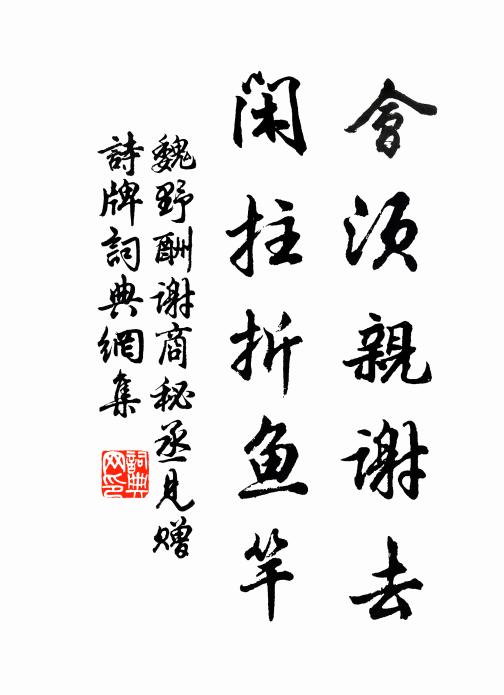 會須親謝去
閑拄折魚竿
魏野酬谢商秘丞見赠
詩牌詞典網集
詞典
网印